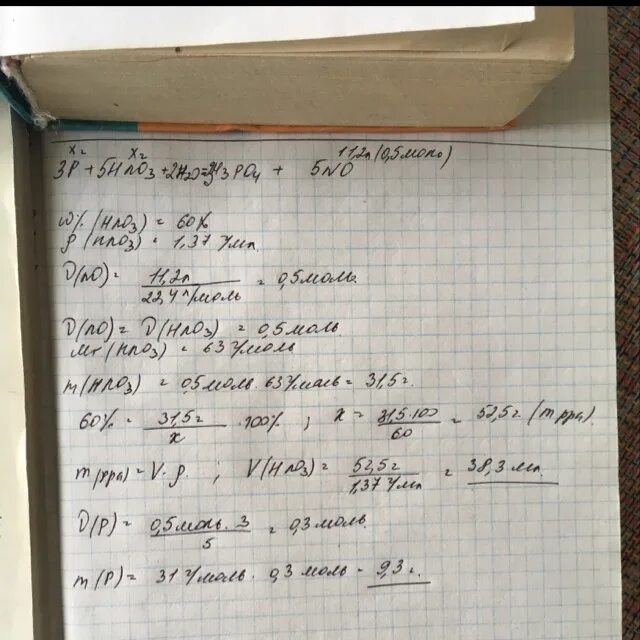 x г x г 11,2л (0,5 моль)
3P + 5HNO₃ + 2H₂O = 3H₃PO₄ + 5NO
W% (HNO₃) = 60%
ρ (HNO₃) = 1,37 г/мл
ν(NO) = 11,2л / 22,4 л/моль = 0,5 моль
ν(NO) = ν(HNO₃) = 0,5 моль
Mr (HNO₃) = 63 г/моль
m(HNO₃) = 0,5 моль · 63 г/моль = 31,5 г.
60% = 31,5 г / x · 100% ; x = 31,5 · 100 / 60 = 52,5 г (m рра).
m(рра) = V · ρ ; V(HNO₃) = 52,5 г / 1,37 г/мл = 38,3 мл.
ν(P) = 0,5 моль · 3 / 5 = 0,3 моль.
m(P) = 31 г/моль · 0,3 моль = 9,3 г.